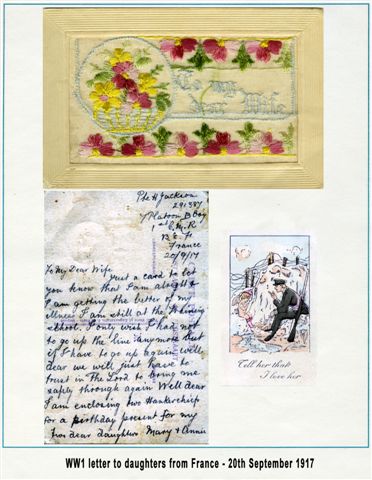 To my
Dear Wife
Pte H Jackson
291387
7 Platoon B Coy
1st C.M.R
B.E.F
France
20/9/17
To My Dear Wife
Just a card to let
you know that I am alright &
I am getting the better of my
illness I am still at the
school. I only wish I had not
to go up the line anymore but
if I have to go up again well
dear we will just have to
trust in The Lord to bring me
safly through again Well dear
I am enclosing two Hankerchief
for a birthday present for my
two dear daughters Mary & Annie
Tell her that
I love her
WW1 letter to daughters from France - 20th September 1917